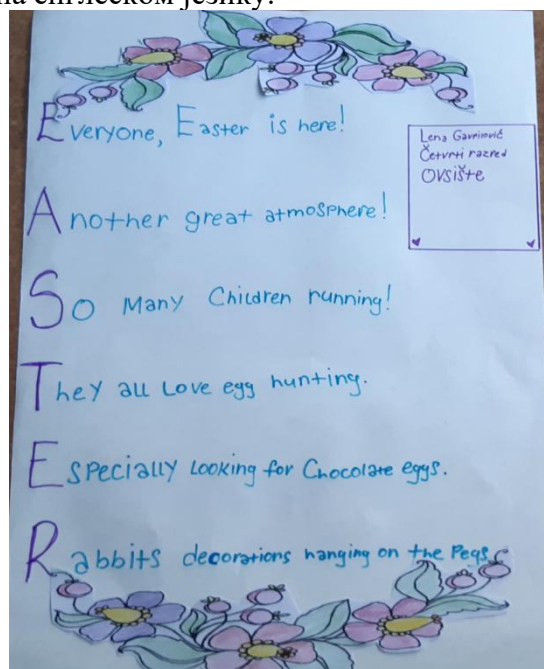 на енглеском језику!
Everyone, Easter is here!
Lena Gavrinović
Četvrti razred
Ovsište
Another great atmosphere!
So Many Children running!
They all Love egg hunting.
Especially Looking for Chocolate eggs.
Rabbits decorations hanging on the Pegs